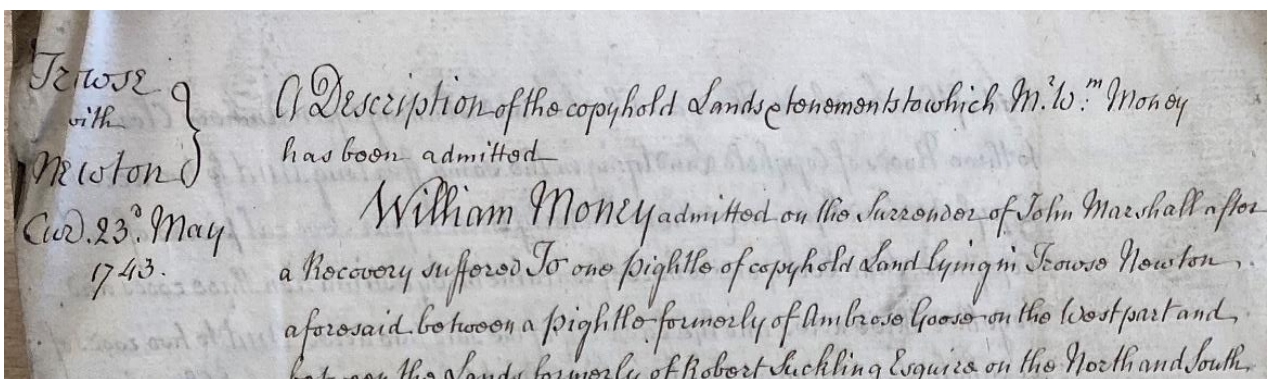 Trowse
with
Newton
Cur. 23d. May
1743.
A Description of the copyhold Lands & tenements to which Mr. Wm. Money
has been admitted
William Money admitted on the Surrender of John Marshall after
a Recovery suffered To one pightle of copyhold Land lying in Trowse Newton
aforesaid between a pightle formerly of Ambrose Goose on the West part and
between the Lands formerly of Robert Suckling Esquire on the North and South